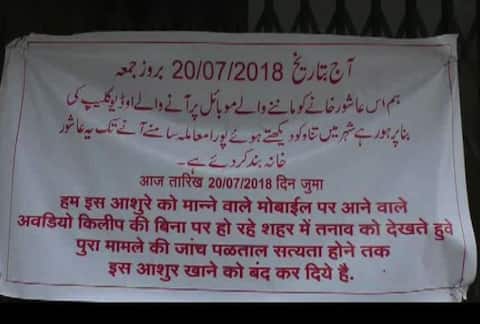 آج بتاریخ 20/07/2018 بروز جمعہ
ہم اس عاشور خانے کو ماننے والے موبائل پر آنے والے اوڈیو کلیپ کی
بنا پر ہو رہے شہر میں تناو کو دیکھتے ہوئے پورا معاملہ سامنے آنے تک یہ عاشور
خانہ بند کر دئے ہے۔
आज तारिख 20/07/2018 दिन जुमा
हम इस आशुरे को मान्ने वाले मोबाईल पर आने वाले
अवडियो किलीप की बिना पर हो रहे शहर में तनाव को देखते हुवे
पुरा मामले की जांच पळताल सत्यता होने तक
इस आशुर खाने को बंद कर दिये है.